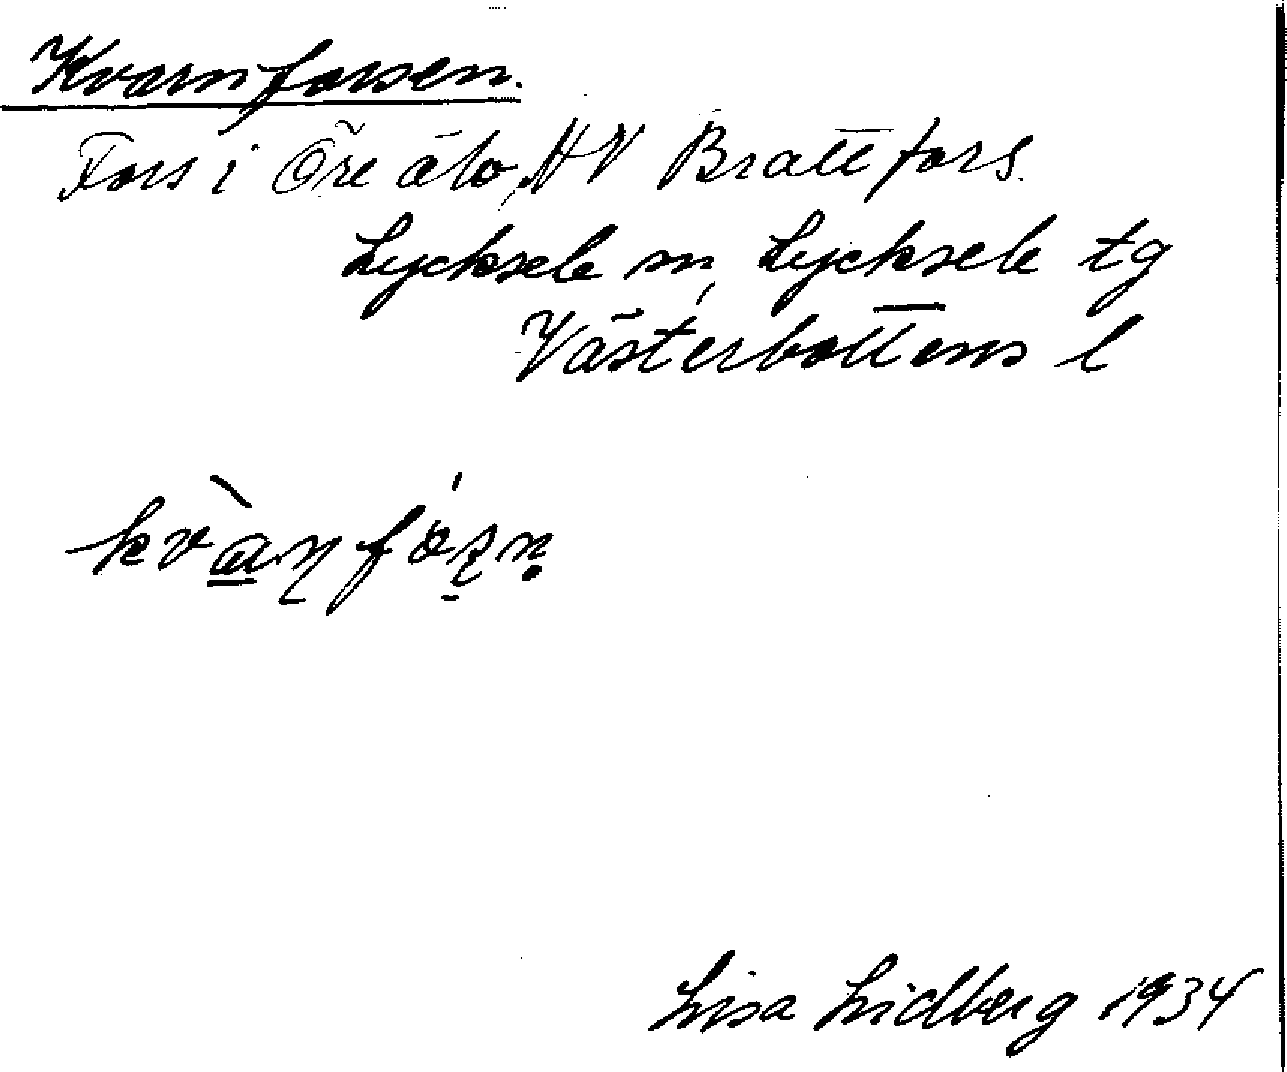 Kvarnforsen.
Fors i Öre älv, NV Brattfors.
Lycksele sn, Lycksele tg
Västerbottens l
kvàn̠fórn̥
Lisa Lidberg 1934